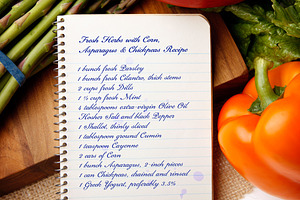 Fresh Herbs with Corn,
Asparagus & Chickpeas Recipe
1 bunch fresh Parsley
1 bunch fresh Cilantro, thick stems
2 cups fresh Dills
1 ½ cup fresh Mint
4 tablespoons extra-virgin Olive Oil
Kosher Salt and black Pepper
1 Shallot, thinly sliced
1 tablespoon ground Cumin
1 teaspoon Cayenne
2 ears of Corn
1 bunch Asparagus, 2-inch pieces
1 can Chickpeas, drained and rinsed
1 Greek Yogurt, preferably 3.5%